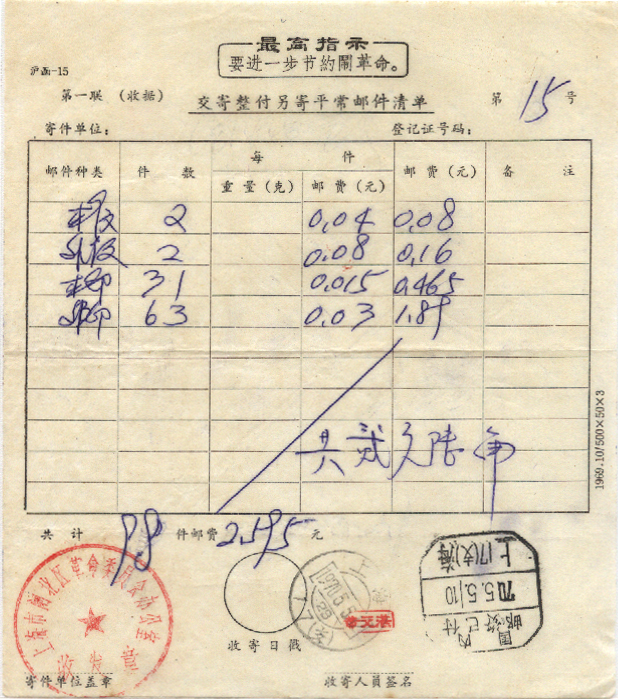 最高指示
要进一步节約鬧革命。
沪函-15
第一联 (收据) 交寄整付另寄平常邮件清单 第 15 号
寄件单位: 登记证号码:
邮件种类 件数 每件 邮费(元) 备注
重量(克) 邮费(元)
本埠 2 0.04 0.08
2 0.08 0.16
本印 31 0.015 0.465
63 0.03 1.89
共贰元陆角
1969.10/500×50×3
共计 98 件邮费 2.595 元
上海市闸北区革命委员会办公室
收发章
1970.5.5
上17(支)海
70.5.5/10
国内
邮资已付
收寄日戳
寄件单位盖章 收寄人员签名